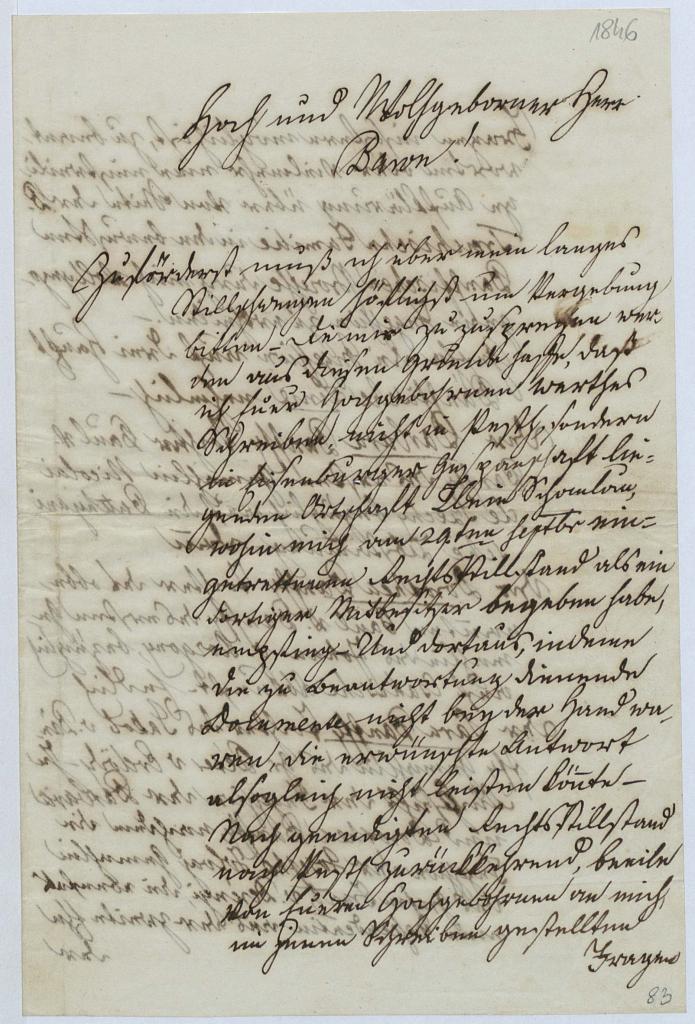 1846
Hoch und Wohlgeborner Herr
Baron!
Zuförderst muß ich über mein langes
Stillschweigen höflichst um Vergebung
bitten – die mir zu zusprechen wer-
den aus diesen Grunde hoffe, daß
ich Euer Hochgebohrnen werthes
Schreiben nicht in Pesth, sondern
in Eisenburger Gespanschaft lie-
genden Ortschaft Klein Schomlau,
wohin mich am 29ten Septbr ein-
getrettenen Rechts Stillstand als ein
dortiger Mitbesitzer begeben habe,
empfing – Und dortaus, indeme
die zu Beantwortung dienende
Dokumente nicht bey der Hand wa-
ren, die erwünschte Antwort
alsogleich nicht leisten könte –
Nach geendigten Rechts Stillstand
nach Pesth zurückkehrend, beeile
von Euern Hochgebohrnen an mich
in jenen Schreiben gestellten
Fragen
83